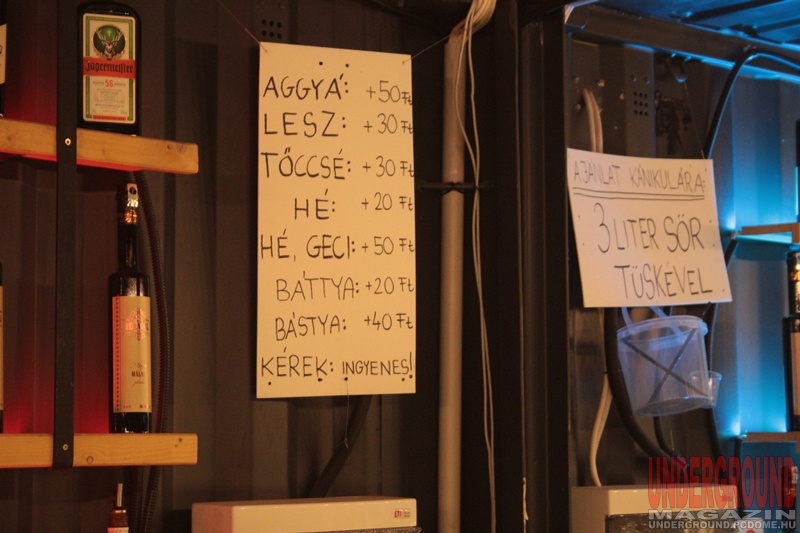 Jägermeister
56
AGGYÁ: +50 Ft
LESZ: +30 Ft
TŐCCSÉ: +30 Ft
HÉ: +20 Ft
HÉ, GECI: +50 Ft
BÁTTYA: +20 Ft
BÁSTYA: +40 Ft
KÉREK: INGYENES!
AJÁNLAT KÁNIKULÁRA:
3 LITER SÖR
TÜSKÉVEL
UNDERGROUND
MAGAZIN
UNDERGROUND.PCDOME.HU